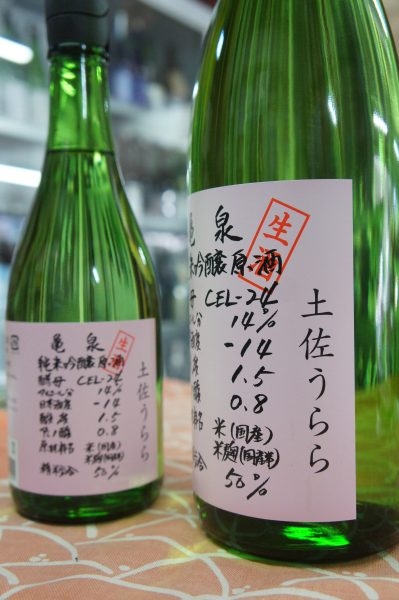 亀泉
生酒
純米吟醸原酒
酵母 CEL-24
アルコール分 14%
日本酒度 -14
酸度 1.5
アミノ酸 0.8
原材料名 米(国産)
米麹(国産米)
精米歩合 50%
土佐うらら
亀泉
生酒
米吟醸原酒
母 CEL-24
ル分 14%
酒度 -14
度 1.5
酸 0.8
料名 米(国産)
米麹(国産米)
歩合 50%
土佐うらら